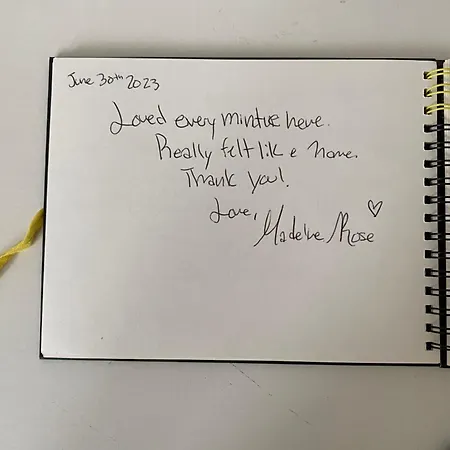 June 30th 2023
Loved every mintue here.
Really felt like home.
Thank you!
Love,
Madeline Rose